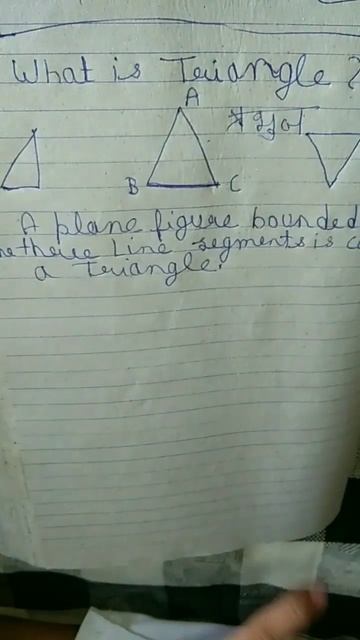 What is Triangle ?
A
त्रिभुज
B C
A plane figure bounded
three Line segments is
a Triangle.